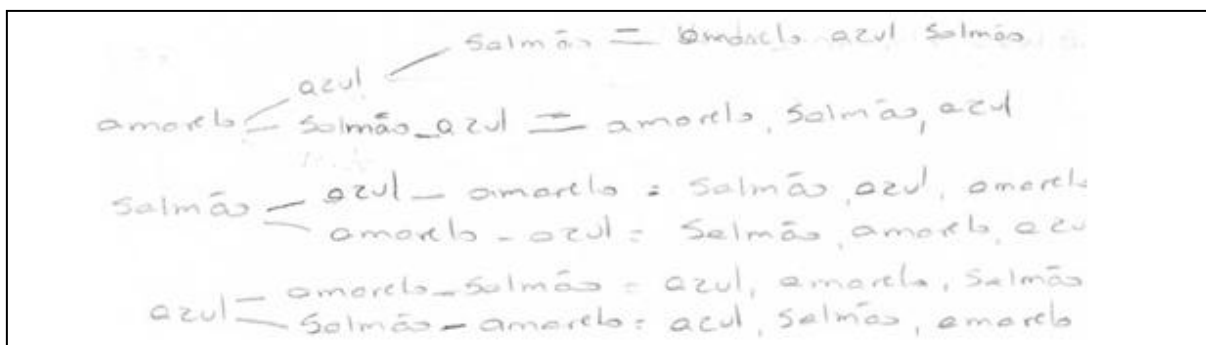 salmão = amarelo azul salmão
azul
amarelo salmão - azul = amarelo, salmão, azul
salmão - azul - amarelo = salmão, azul, amarelo
amarelo - azul = salmão, amarelo, azu
azul - amarelo - salmão = azul, amarelo, salmão
salmão - amarelo = azul, salmão, amarelo